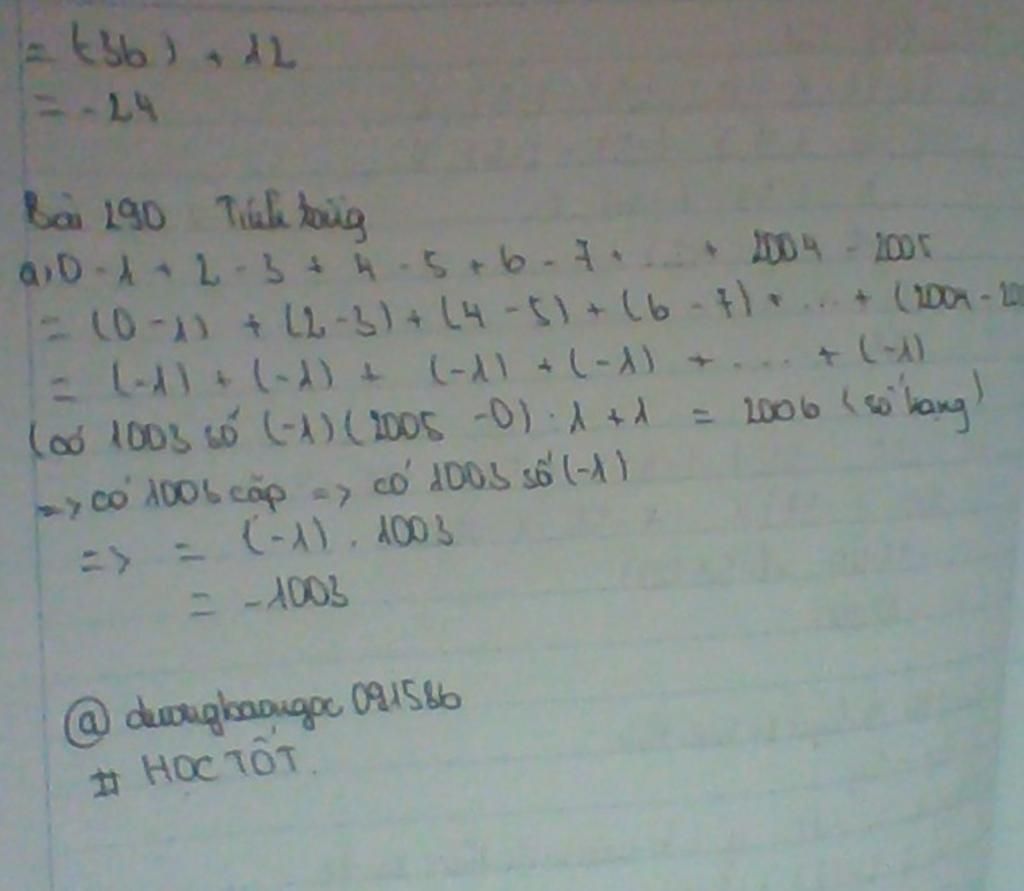 = (-36) + 12
= -24
Bài 290 Tính tổng
a, 0 - 1 + 2 - 3 + 4 - 5 + 6 - 7 + .... + 2004 - 2005
= (0 - 1) + (2 - 3) + (4 - 5) + (6 - 7) + ... + (2004 - 20
= (-1) + (-1) + (-1) + (-1) + .... + (-1)
(có 1003 số (-1) (2005 - 0) . 1 + 1 = 2006 (số hạng)
=> có 1003 cặp => có 1003 số (-1)
=> = (-1) . 1003
= -1003
@ duongbaongoc 091586
# HỌC TỐT.